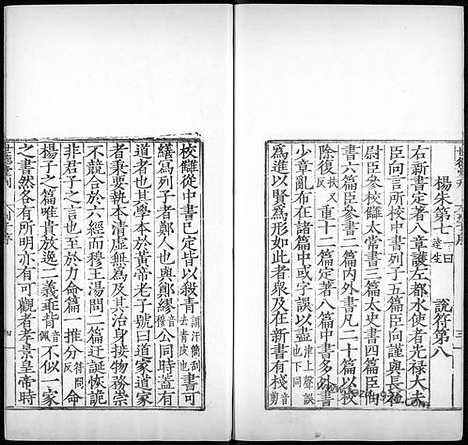 楊朱第七 一曰達生 說符第八
右新書定著八章護左都水使者光祿大夫
臣向言所校中書列子五篇臣向謹與長社
尉臣參校讎太常書三篇太史書四篇臣向
書六篇臣參書二篇內外書凡二十篇以校
除復重十二篇定著八篇中書多外書
少章亂布在諸篇中或字誤以盡為進以賢為形如此者衆及在新書有棧
校讎從中書已定皆以殺青書可
繕寫列子者鄭人也與鄭繆公同時蓋有
道者也其學本於黃帝老子號曰道家道家
者秉要執本清虛無為及其治身接物務崇
不競合於六經而穆王湯問二篇迂誕恢詭
非君子之言也至於力命篇一推分命
楊子之篇唯貴放逸二義乖背不似一家
之書然各有所明亦有可觀者孝景皇帝時